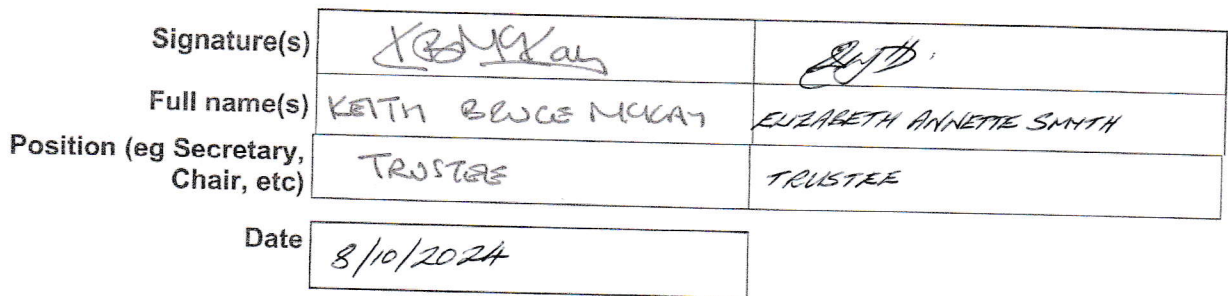 Signature(s) KBMcKay
Full name(s) KEITH BRUCE MCKAY ELIZABETH ANNETTE SMYTH
Position (eg Secretary, Chair, etc) TRUSTEE TRUSTEE
Date 8/10/2024